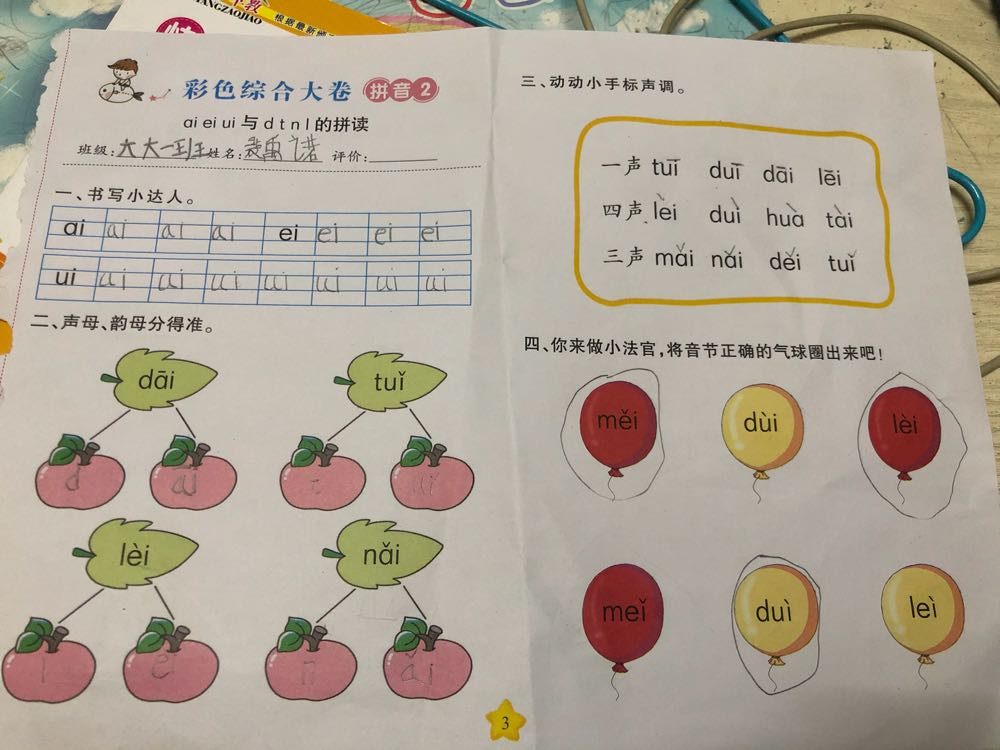 ANGZAOJIAO
根据最新
彩色综合大卷 拼音2
ai ei ui 与 d t n l 的拼读
班级:大大一班 姓名: 评价:
一、书写小达人。
ai ai ai ai ei ei ei ei
ui ui ui ui ui ui ui ui
二、声母、韵母分得准。
dāi tuǐ
d ai t ui
lèi nǎi
l ei n ǎi
三、动动小手标声调。
一声 tuī duī dāi lēi
四声 lèi duì huà tài
三声 mǎi nǎi děi tuǐ
四、你来做小法官,将音节正确的气球圈出来吧!
měi dùi lèi
meǐ duì leì
3